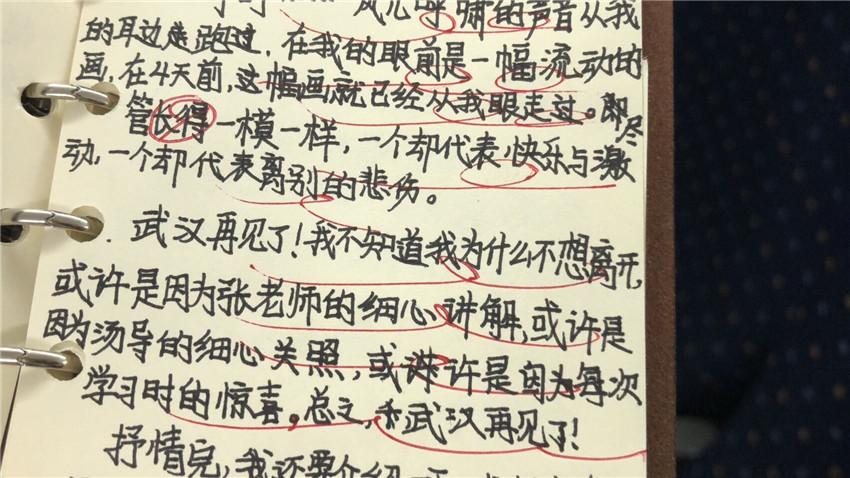 风儿呼啸的声音从我
的耳边走跑过，在我的眼前是一幅流动的
画，在4天前，这幅画就已经从我眼走过。即尽
管长得一模一样，一个却代表快乐与激
动，一个却代表离别的悲伤。
武汉再见了！我不知道我为什么不想离开，
或许是因为张老师的细心讲解，或许是
因为汤导的细心关照，或讲许是因为每次
学习时的惊喜。总之，武汉再见了！
抒情完，我还要介绍